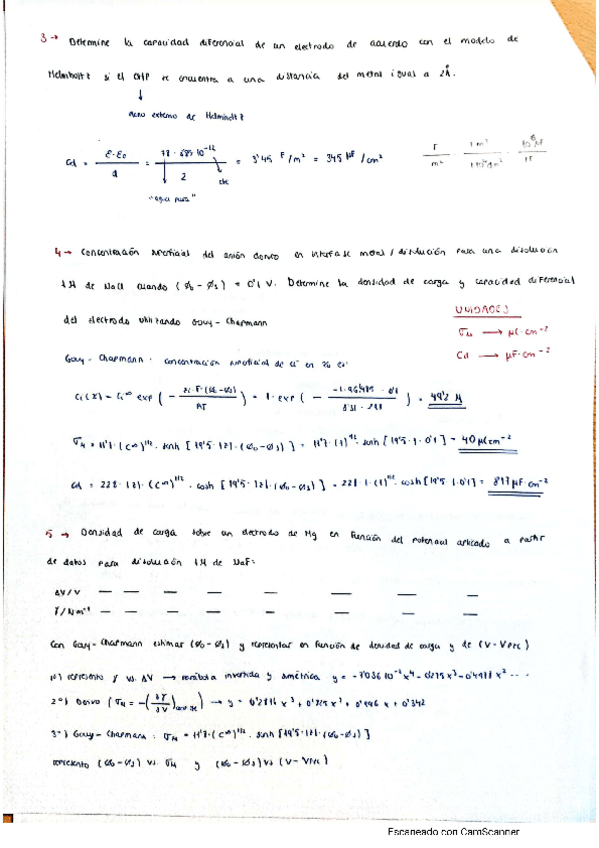 3 → Determine la capacidad diferencial de un electrodo de acuerdo con el modelo de
Helmholtz si el OHP se encuentra a una distancia del metal igual a 2Å.
↓
plano externo de Helmholtz
Cd = ε·ε₀ / d = 78 · 8'85·10⁻¹² / 2 = 3'45 F/m² = 345 µF/cm²
F/m² · 1 m²/1·10⁴ cm² · 10⁶ µF/1F
"agua pura"
4 → Concentración superficial del anión cloruro en interfase metal/disolución para una disolución
1 M de NaCl cuando (ø₀ - øs) = 0'1 V. Determine la densidad de carga y capacidad diferencial
del electrodo utilizando Gouy - Chapmann
UNIDADES
σM → µC·cm⁻²
Cd → µF·cm⁻²
Gouy - Chapmann · concentración superficial de Cl⁻ en
Ci(x) = Ci∞ exp ( - zi·F·(ø₀-øs) / RT ) = 1 · exp ( - -1·96485 · 0'1 / 8'31 · 298 ) = 49'2 M
σM = 11'7·(C∞)^1/2 · senh [19'5·|z|·(ø₀-øs)] = 11'7·(1)^1/2 · senh [19'5·1·0'1] = 40 µC·cm⁻²
Cd = 228·|z|·(C∞)^1/2 · cosh [19'5·|z|·(ø₀-øs)] = 228·1·(1)^1/2 · cosh [19'5·1·0'1] = 817 µF·cm⁻²
5 → Densidad de carga sobre un electrodo de Hg en función del potencial aplicado a partir
de datos para disolución 1M de NaF:
ΔV/V — — — — — — — —
γ/N·m⁻¹ — — — — — — — —
Con Gouy-Chapmann estimar (ø₀-øs) y representar en función de densidad de carga y de (V-Vpzc)
1º) represento γ vs. ΔV → parábola invertida y simétrica y = -7'036·10⁻²x⁴ - 0'275x³ - 0'4978x² ...
2º) Derivo (σM = -(∂γ/∂V)) → y = 0'2814x³ + 0'825x² + 0'996x + 0'342
3º) Gouy-Chapmann : σM = 11'7·(C∞)^1/2 · senh [19'5·|z|·(ø₀-øs)]
represento (ø₀-øs) vs. σM y (ø₀-øs) vs (V-Vpzc)
Escaneado con CamScanner